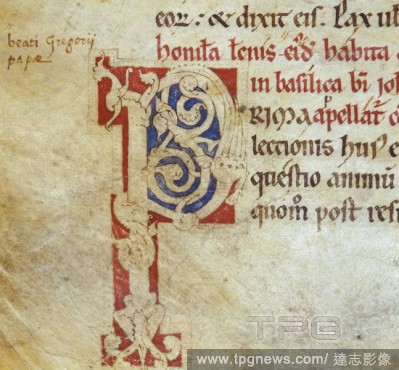 beati Gregorii
papæ
eor : & dixit eis. Pax
homilia lenis eiđ habita
in basilica bi ioh
P
RIMA apellat
lectionis hui
questio animū
quom post resi
TPG
www.tpgnews.com/ 達志影像